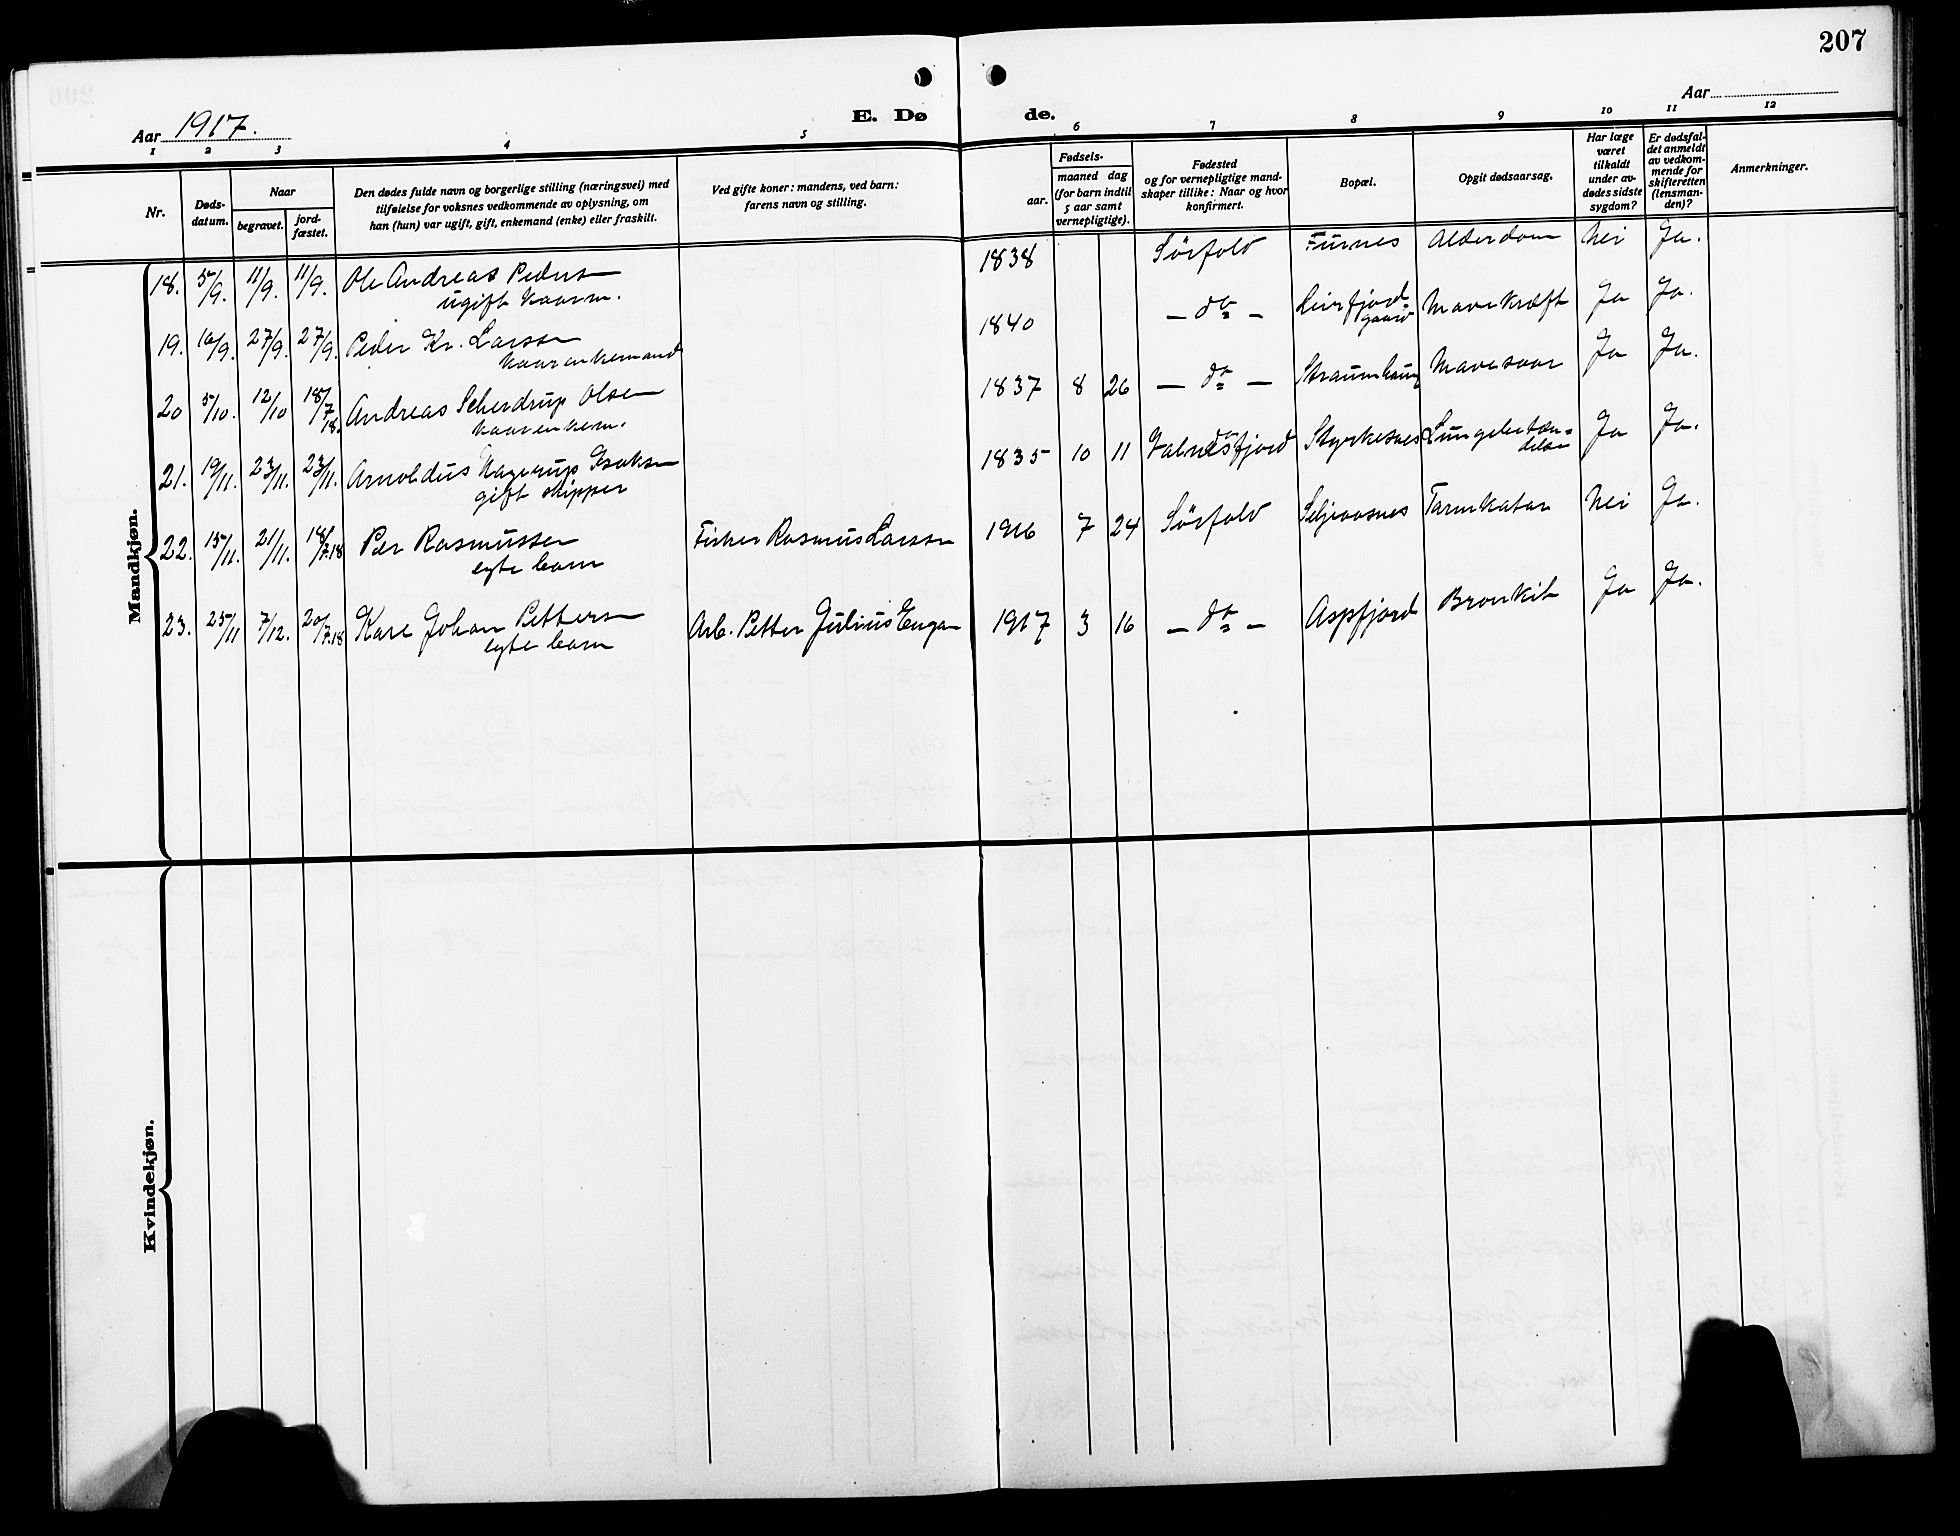 207
Aar 1917.
E. Dø de.
Aar
1 2 3 4 5 6 7 8 9 10 11 12
Nr.
Døds-
datum.
Naar
begravet.
jord-
fæstet.
Den dødes fulde navn og borgerlige stilling (næringsvei) med
tilføielse for voksnes vedkommende av oplysning, om
han (hun) var ugift, gift, enkemand (enke) eller fraskilt.
Ved gifte koner: mandens, ved barn:
farens navn og stilling.
aar.
Fødsels-
maaned dag
(for barn indtil
5 aar samt
vernepligtige).
Fødested
og for vernepligtige mand-
skaper tillike: Naar og hvor
konfirmert.
Bopæl.
Opgit dødsaarsag.
Har læge
været
tilkaldt
under av-
dødes sidste
sygdom?
Er dødsfal-
det anmeldt
av vedkom-
mende for
skifteretten
(lensman-
den)?
Anmerkninger.
Mandkjøn.
18. 5/9. 11/9. 11/9. Ole Andreas Pedersen 1838 Sörfold Furnes Alderdom Nei Ja.
ugift kaarm.
19. 16/9. 27/9. 27/9. Peder Kr. Larssen 1840 — do — Leirfjord- Mavekræft Ja Ja.
gaard
kaarenkemand
20 5/10. 12/10 18/7 18. Andreas Scherdrup Olsen 1837 8 26 — do — Straumhaug Mavesaar Ja Ja.
kaarenkem.
21. 19/11. 23/11. 23/11. Arnoldus Hagerup Isaksen 1835 10 11 Valnesfjord Styrkesnes Lungebetæn-
delse Ja Ja.
gift skipper
22. 15/11. 21/11. 18/7.18 Per Rasmussen Fisker Rasmus Larssen 1916 7 24 Sörfold Seljeaasnes Tarmkatar Nei Ja.
egte barn
23. 25/11 7/12. 20/7.18 Kare Johan Pettersen Arb. Petter Julius Engan 1917 3 16 — do — Aspfjord Bronkit Ja Ja.
egte barn
Kvindekjøn.